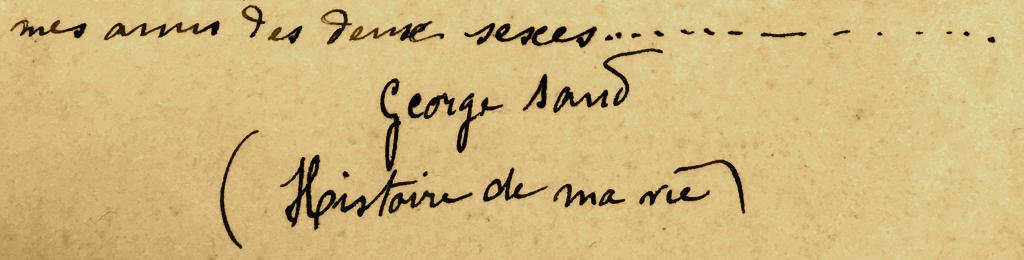 mes amis des deux sexes.................
George Sand
(Histoire de ma vie)